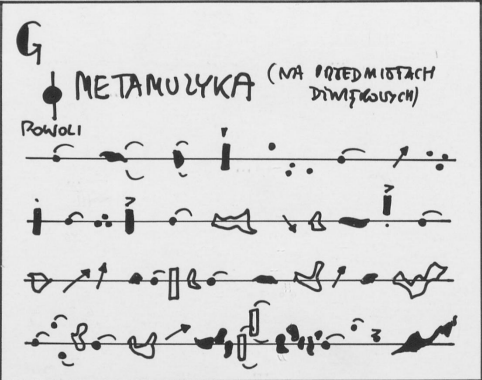 G
METAMUZYKA (NA PRZEDMIOTACH
DŹWIĘKOWYCH)
POWOLI